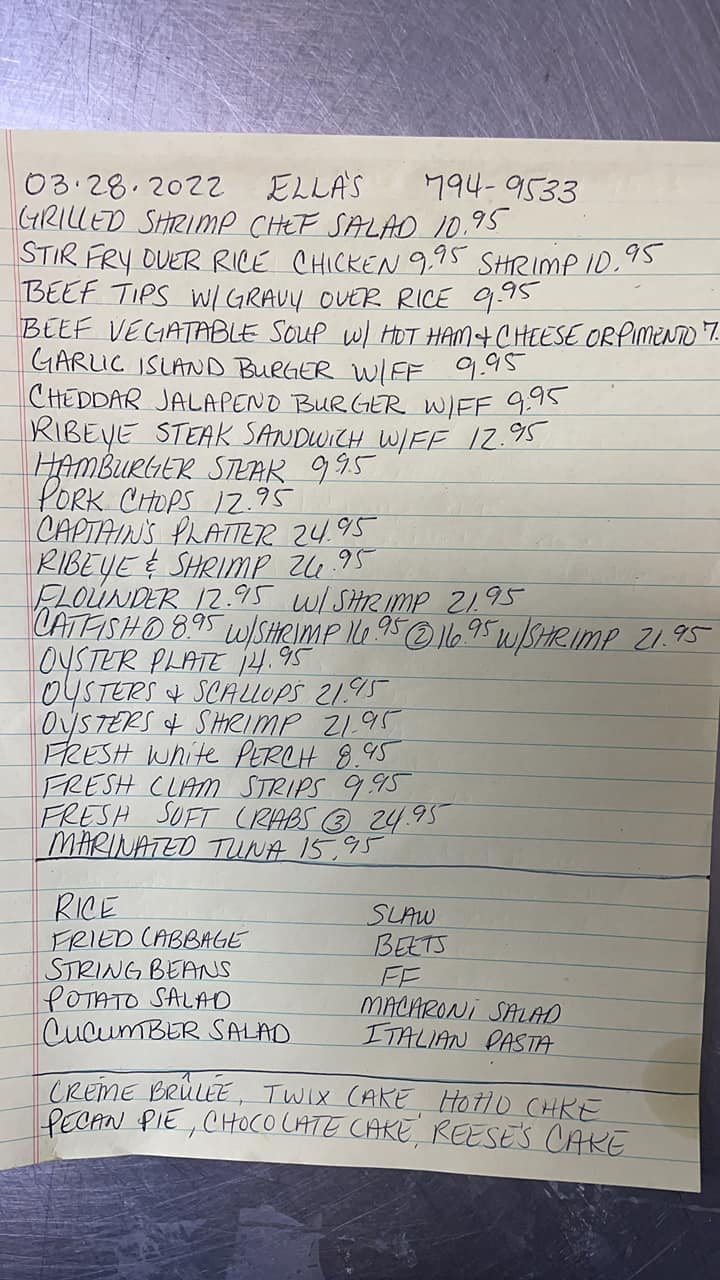 03.28.2022 ELLA'S 794-9533
GRILLED SHRIMP CHEF SALAD 10.95
STIR FRY OVER RICE CHICKEN 9.95 SHRIMP 10.95
BEEF TIPS W/GRAVY OVER RICE 9.95
BEEF VEGATABLE SOUP W/ HOT HAM & CHEESE OR PIMENTO 7.
GARLIC ISLAND BURGER W/FF 9.95
CHEDDAR JALAPENO BURGER W/FF 9.95
RIBEYE STEAK SANDWICH W/FF 12.95
HAMBURGER STEAK 9.95
PORK CHOPS 12.95
CAPTAIN'S PLATTER 24.95
RIBEYE & SHRIMP 26.95
FLOUNDER 12.95 W/ SHRIMP 21.95
CATFISH ① 8.95 W/SHRIMP 16.95 ② 16.95 W/SHRIMP 21.95
OYSTER PLATE 14.95
OYSTERS & SCALLOPS 21.95
OYSTERS & SHRIMP 21.95
FRESH White PERCH 8.95
FRESH CLAM STRIPS 9.95
FRESH SOFT CRABS ③ 24.95
MARINATED TUNA 15.95
RICE SLAW
FRIED CABBAGE BEETS
STRING BEANS FF
POTATO SALAD MACARONI SALAD
CUCUMBER SALAD ITALIAN PASTA
CREME BRÛLÉE, TWIX CAKE, CAKE
PECAN PIE, CHOCOLATE CAKE, REESE'S CAKE